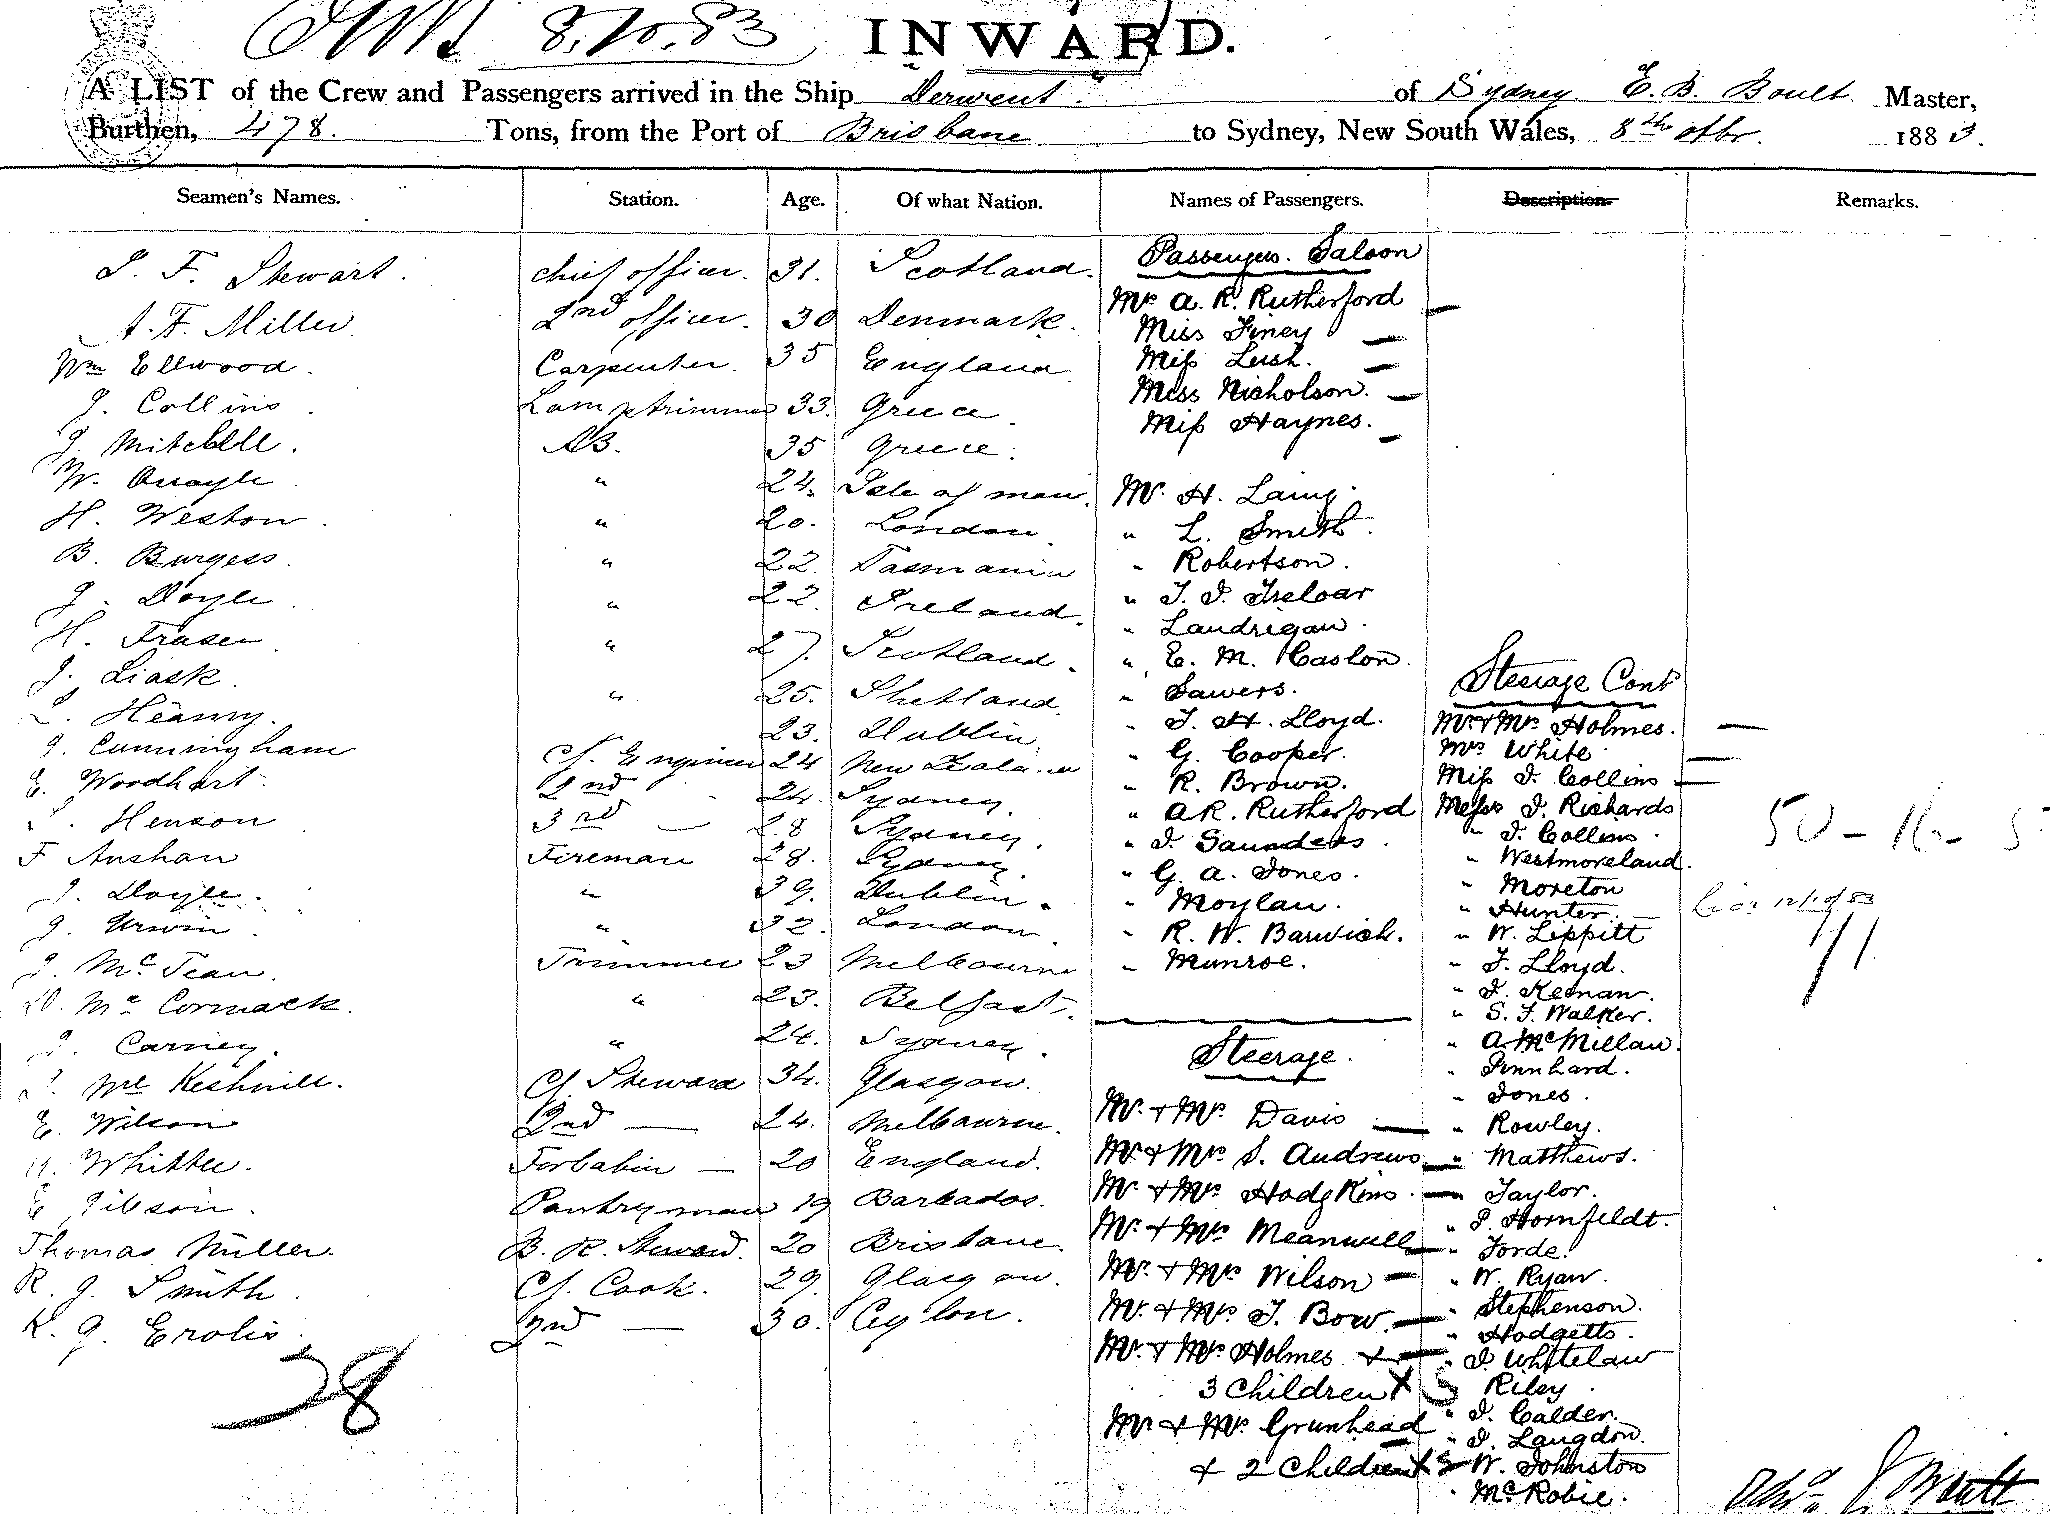 8.10.83 INWARD.
A LIST of the Crew and Passengers arrived in the Ship Derwent. of Sydney E. B. Boult Master,
Burthen, 478. Tons, from the Port of Brisbane to Sydney, New South Wales, 8th Octbr. 1883.
Seamen's Names. Station. Age. Of what Nation. Names of Passengers. Description. Remarks.
F. Stewart. chief officer. 31. Scotland.
A. F. Miller 2nd officer. 30 Denmark.
Wm Ellwood. Carpenter. 35 England
J. Collins. Lamptrimmer 33. Greece.
J. Mitchell. AB. 35 Greece.
W. Quayle " 24. Isle of man.
H. Weston. " 20. London.
B. Burgess. " 22. Tasmania
J. Doyle. " 22. Ireland.
H. Fraser " 27. Scotland.
J. Liask. " 25. Shetland.
Heamy. 23. Dublin.
J. Cunningham Cf. Engineer 24 New Zealand
E. Woodhart. 2nd 24. Sydney.
Henson 3rd — 28 Sydney.
F Anshan Fireman 28. Sydney.
J. Doyle. " 39. Dublin.
J. Urwin. " 32. London.
J. McJean. Trimmer 23 Melbourne
McCormack. " 23. Belfast.
J. Carney. " 24. Sydney.
Cf Steward 34. Glasgow.
E. Wilson 2nd — 24. Melbourne.
Whittee. Forcabin — 20 England.
E Gibson. Pantryman 19 Barbados.
Thomas Miller. B. R. Steward. 20 Brisbane.
R. J. Smith. Cf. Cook. 29. Glasgow.
K. J. Erolis. 2nd — 30. Ceylon.
28
Passengers. Saloon
Mr. A. R. Rutherford —
Miss Finey —
Miss Lush. —
Miss Nicholson. —
Miss Haynes. —
Mr. H. Laing.
" L. Smith.
" Robertson.
" T. J. Treloar
" Landrigan.
" E. M. Caslon.
" Sawers.
" J. H. Lloyd.
" G. Cooper.
" R. Brown.
" A R. Rutherford
" J. Saunders.
" G. A. Jones.
" Moylan.
" R. W. Barwick.
" Munroe.
Steerage.
Mr. + Mrs. Davis —
Mr + Mrs S. Andrews —
Mr + Mrs Hodgkins —
Mr. + Mrs Meanwell —
Mr. + Mrs Wilson —
Mr. + Mrs. J. Bow. —
Mr. + Mrs Holmes + —
3 Children X
Mr + Mrs. Grunhead —
+ 2 Children X
Steerage Cont
Mr + Mrs Holmes. —
Mrs White —
Miss J. Collins —
Messrs J. Richards
" J. Collins.
" Westmoreland.
" Moreton
" Hunter.
" W. Leppitt
" J. Lloyd.
" J. Keenan.
" S. J. Walker.
" A. McMillan.
" Pinnhard.
" Jones.
" Rowley.
" Matthews.
" Taylor.
" P. Hornfeldt.
" Forde.
" W. Ryan.
" Stephenson.
" Hodgetts.
" J. Whitelaw
Riley.
" J. Calder.
" J. Langdon.
W. Johnston
McRobie.
50 - 16 - 5